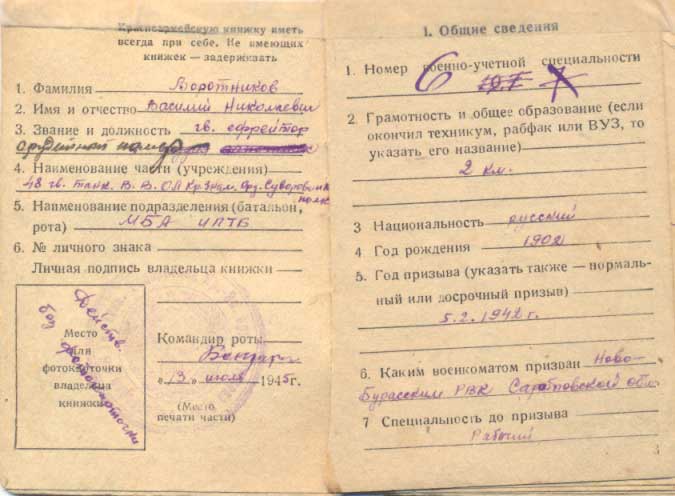 Красноармейскую книжку иметь
всегда при себе. Не имеющих
книжек — задерживать
1. Фамилия Воротников
2. Имя и отчество Василий Николаевич
3. Звание и должность гв. ефрейтор
орудийный номер
4. Наименование части (учреждения)
48 гв. танк. В. В. ОЛ Кр. Знам. Орд. Суворова
полк
5. Наименование подразделения (батальон,
рота) МБА ИПТБ
6. № личного знака
Личная подпись владельца книжки
Действ.
без фотокарточки
Место
для
фотокарточки
владельца
книжки
Командир роты
Бондарь
„13" июля 1945 г.
(Место
печати части)
1. Общие сведения
1. Номер военно-учетной специальности
6 7
2. Грамотность и общее образование (если
окончил техникум, рабфак или ВУЗ, то
указать его название)
2 кл.
3 Национальность русский
4. Год рождения 1902
5. Год призыва (указать также — нормаль-
ный или досрочный призыв)
5.2.1942 г.
6. Каким военкоматом призван Ново-
Бурасским РВК Саратовской обл.
7 Специальность до призыва
Рабочий
3